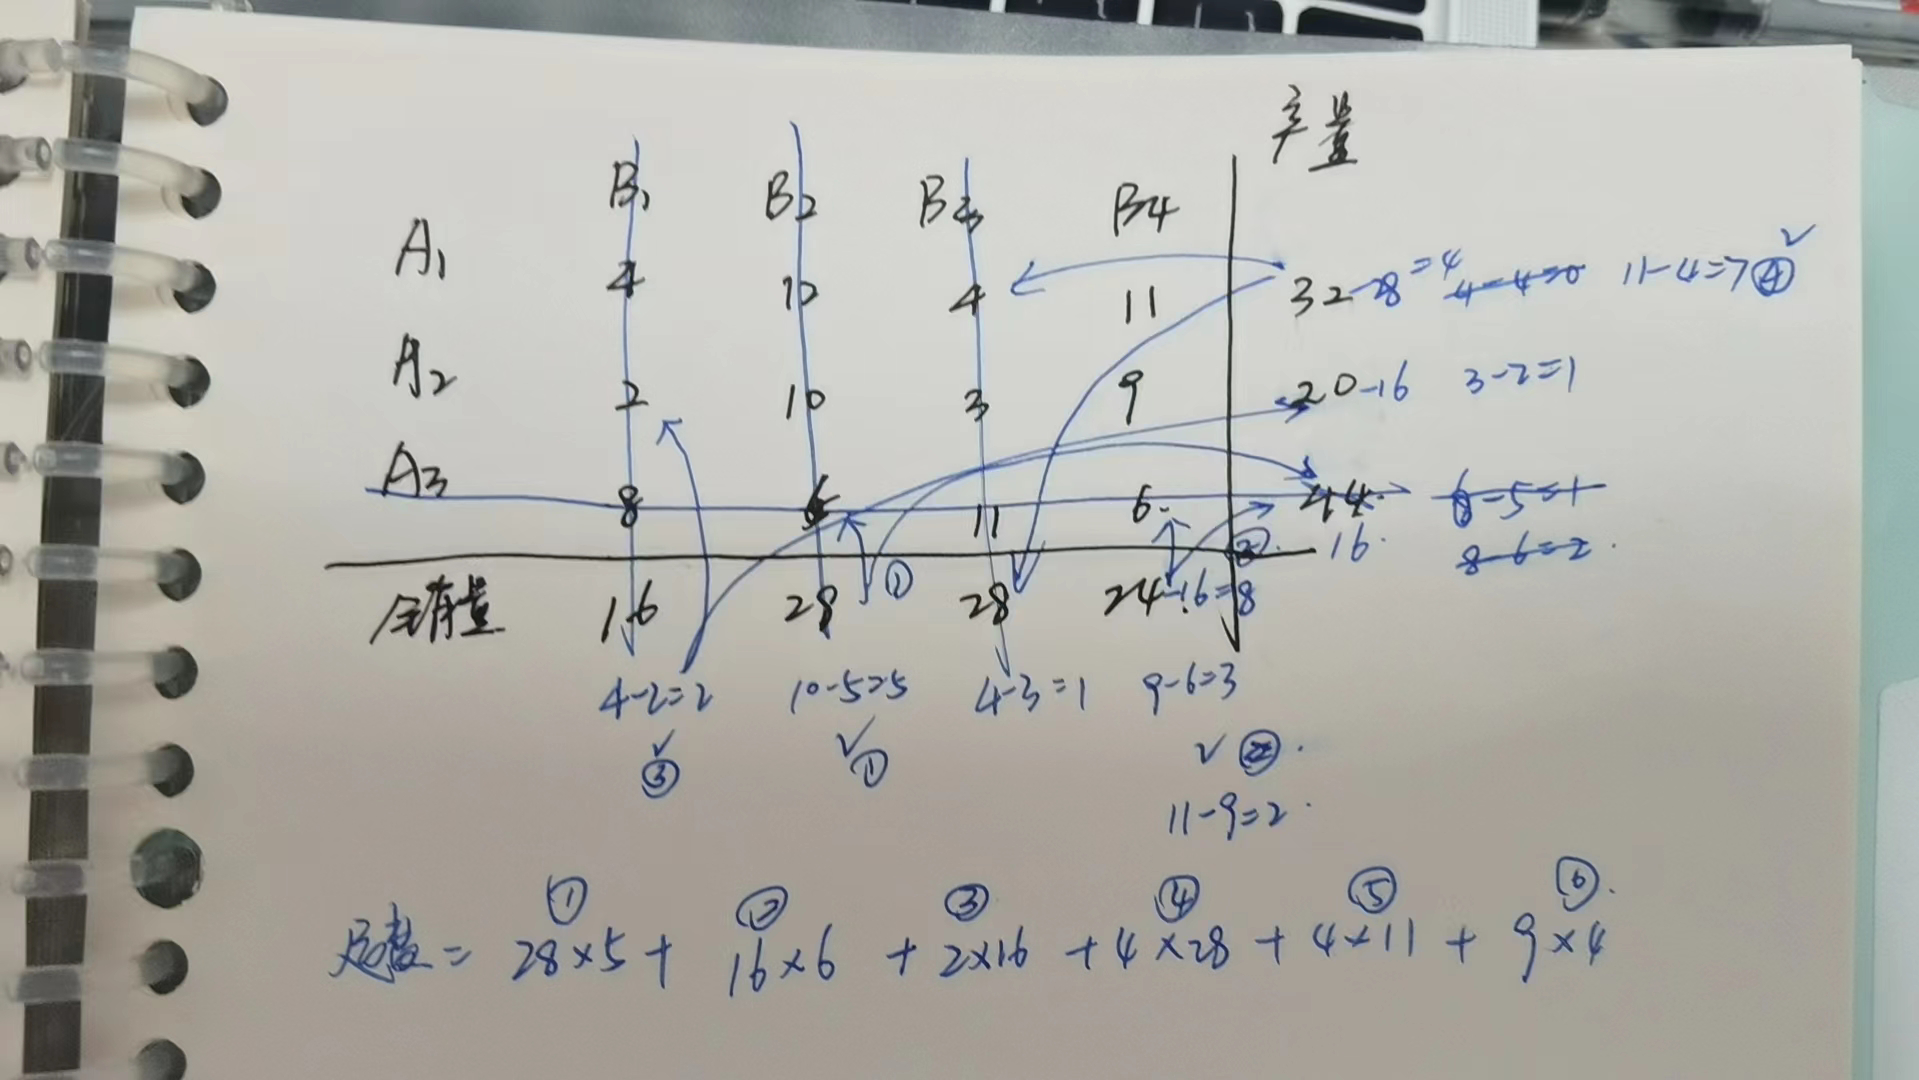 产量
B1 B2 B3 B4
A1
4 12 4 11 32-28=4 4-4=0 11-4=7 ④
A2
2 10 3 9 20-16 3-2=1
A3
8 11 6 44 8-5=1
② 16 8-6=2
①
16 28 28 24-16=8
4-2=2 10-5=5 4-3=1 9-6=3
③ ① ②
11-9=2
① ② ③ ④ ⑤ ⑥
= 28×5+ 16×6 + 2×16 +4×28 + 4×11 + 9×4